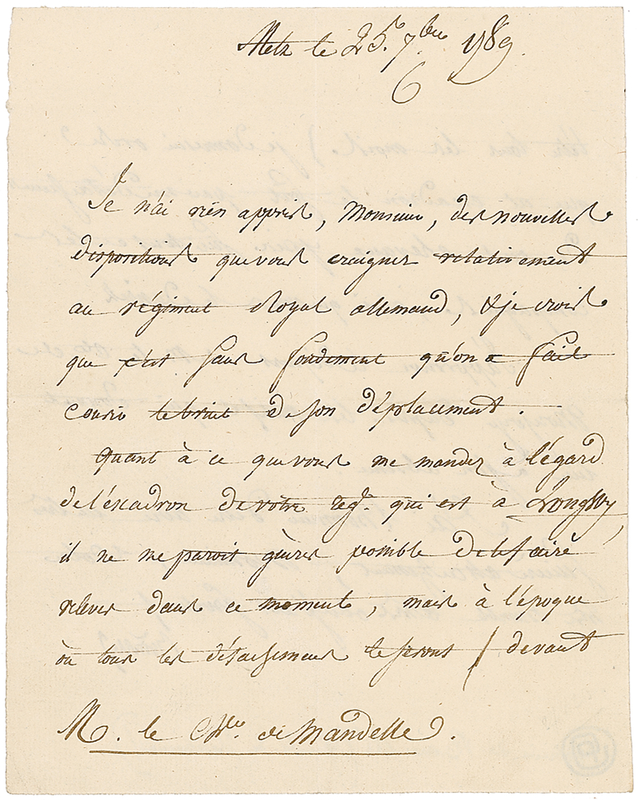 Metz le 25. 7bre 1789
6
Je n'ai rien appris, Monsieur, des nouvelles
dispositions que vous craignez relativement
au régiment Royal allemand, & je crois
que c'est sans fondement qu'on a fait
courir le bruit de son déplacement.
Quant à ce que vous me mandez à l'égard
de l'escadron de votre regt. qui est à Longwy,
il ne me paroit guères possible de le faire
relever dans ce moment, mais à l'époque
où tous les détachemens le seront / devant
M. le de Mandelle.